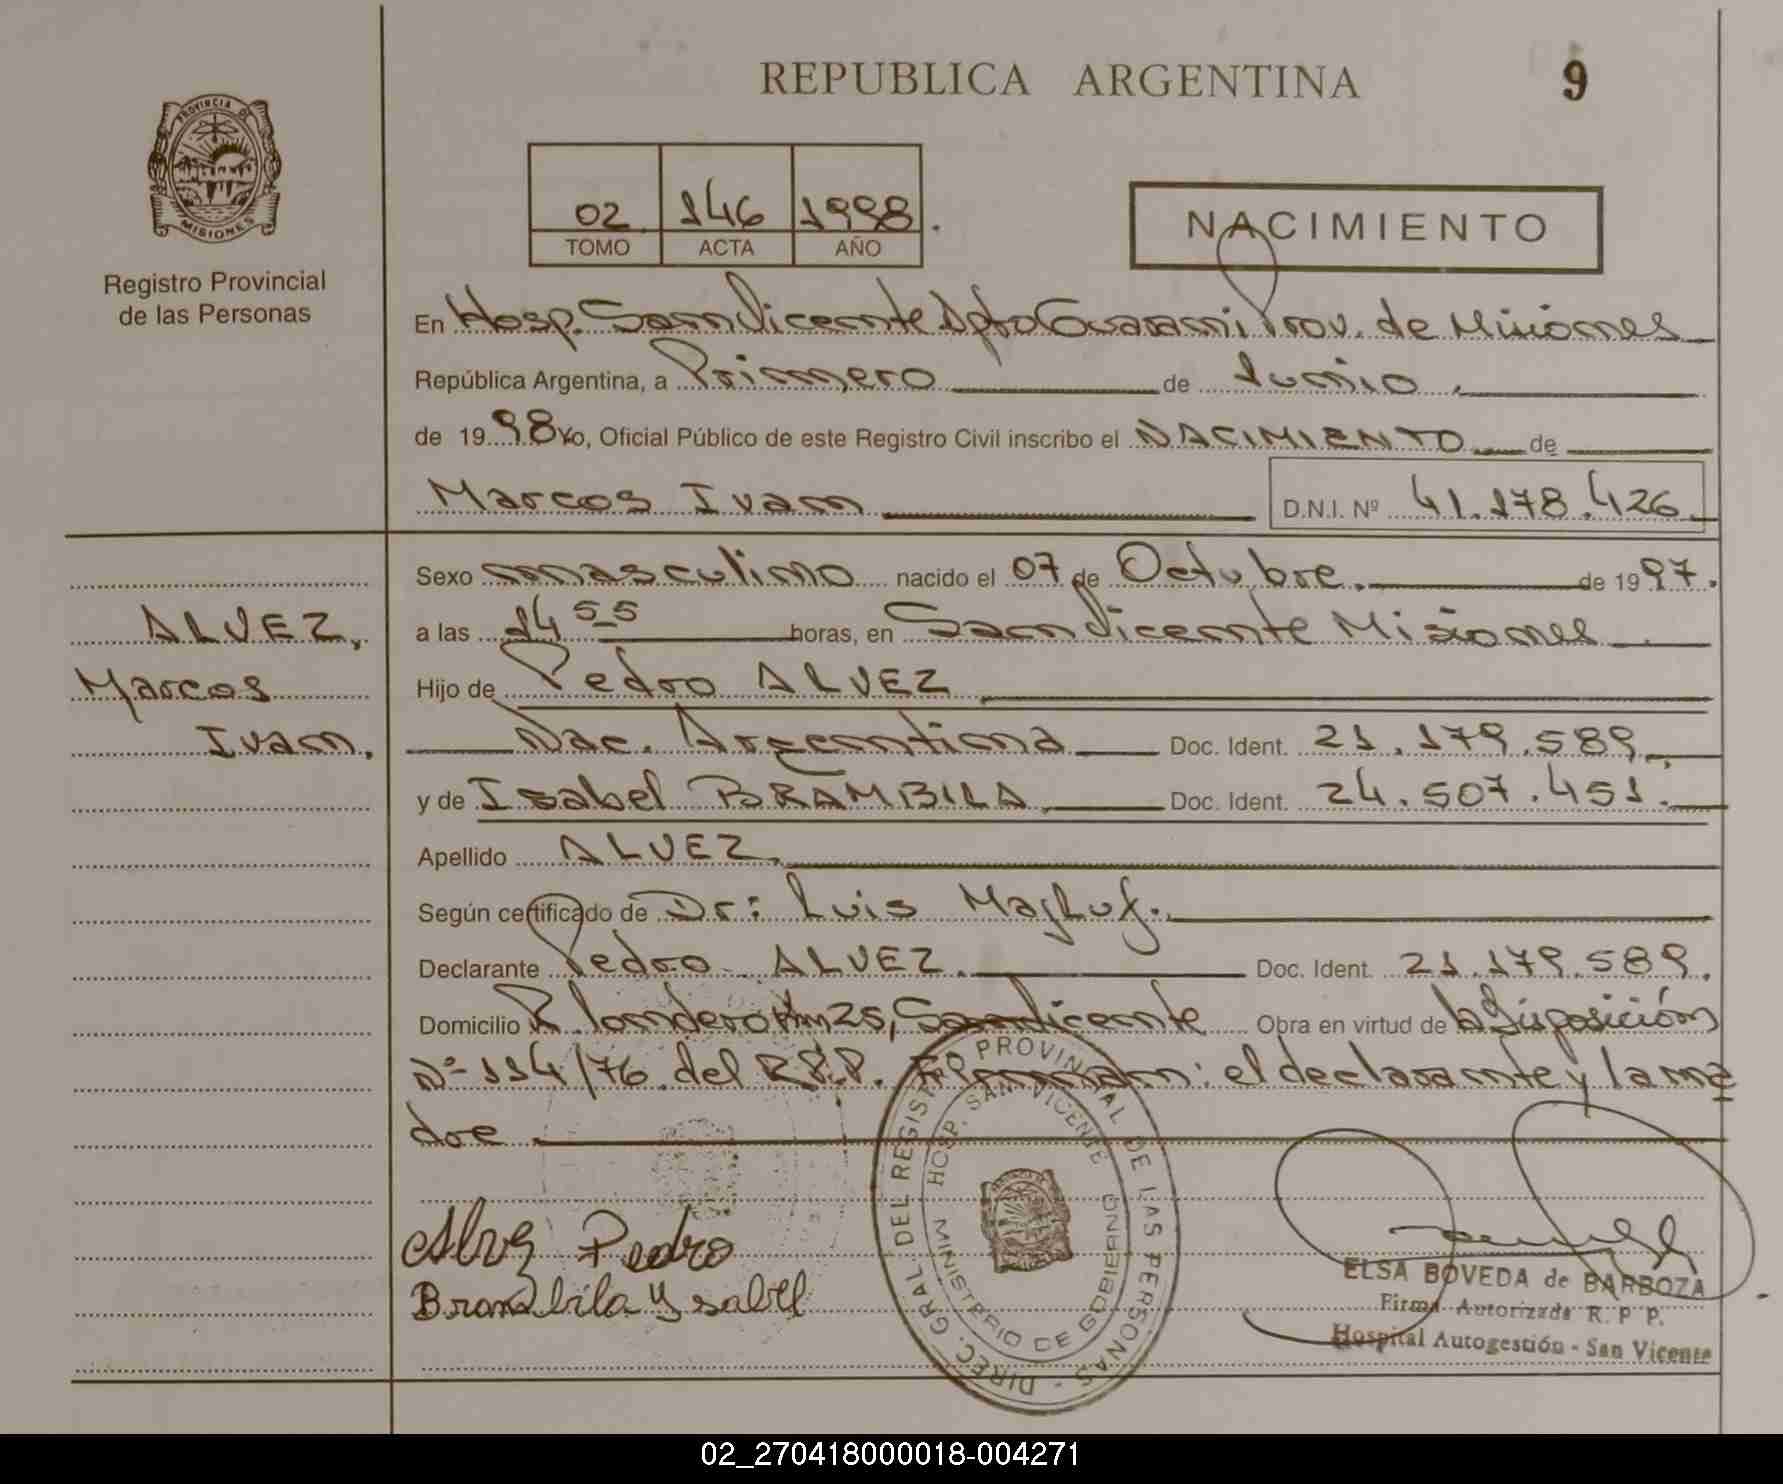 REPUBLICA ARGENTINA
9
PROVINCIA DE
MISIONES
Registro Provincial
de las Personas
02 146 1998.
TOMO ACTA AÑO
NACIMIENTO
En Hosp. San Vicente Dpto Guarani Prov. de Misiones
República Argentina, a Primero de Junio.
de 1998 Yo, Oficial Público de este Registro Civil inscribo el NACIMIENTO de
Marcos Ivan D.N.I. Nº 41.178.426
Sexo masculino nacido el 07 de Octubre. de 1997.
ALVEZ,
Marcos
Ivan.
a las 14 55 horas, en San Vicente Misiones
Hijo de Pedro ALVEZ
Nac. Argentina Doc. Ident. 21.179.589
y de Isabel BRAMBILA Doc. Ident. 24.507.451.
Apellido ALVEZ
Según certificado de Dr: Luis
Declarante Pedro ALVEZ. Doc. Ident. 21.179.589.
Domicilio San Vicente Obra en virtud de la Disposición
Nº 114/76 del R.P.P. Firman: el declarante y la ma
dre.
Alvez Pedro
Brambila Ysabel
DIREC. GRAL DEL REGISTRO PROVINCIAL DE LAS PERSONAS -
HOSP. SAN VICENTE
MINISTERIO DE GOBIERNO
ELSA BOVEDA de BARBOZA
Firma Autorizada R. P P.
Hospital Autogestión - San Vicente
02_270418000018-004271